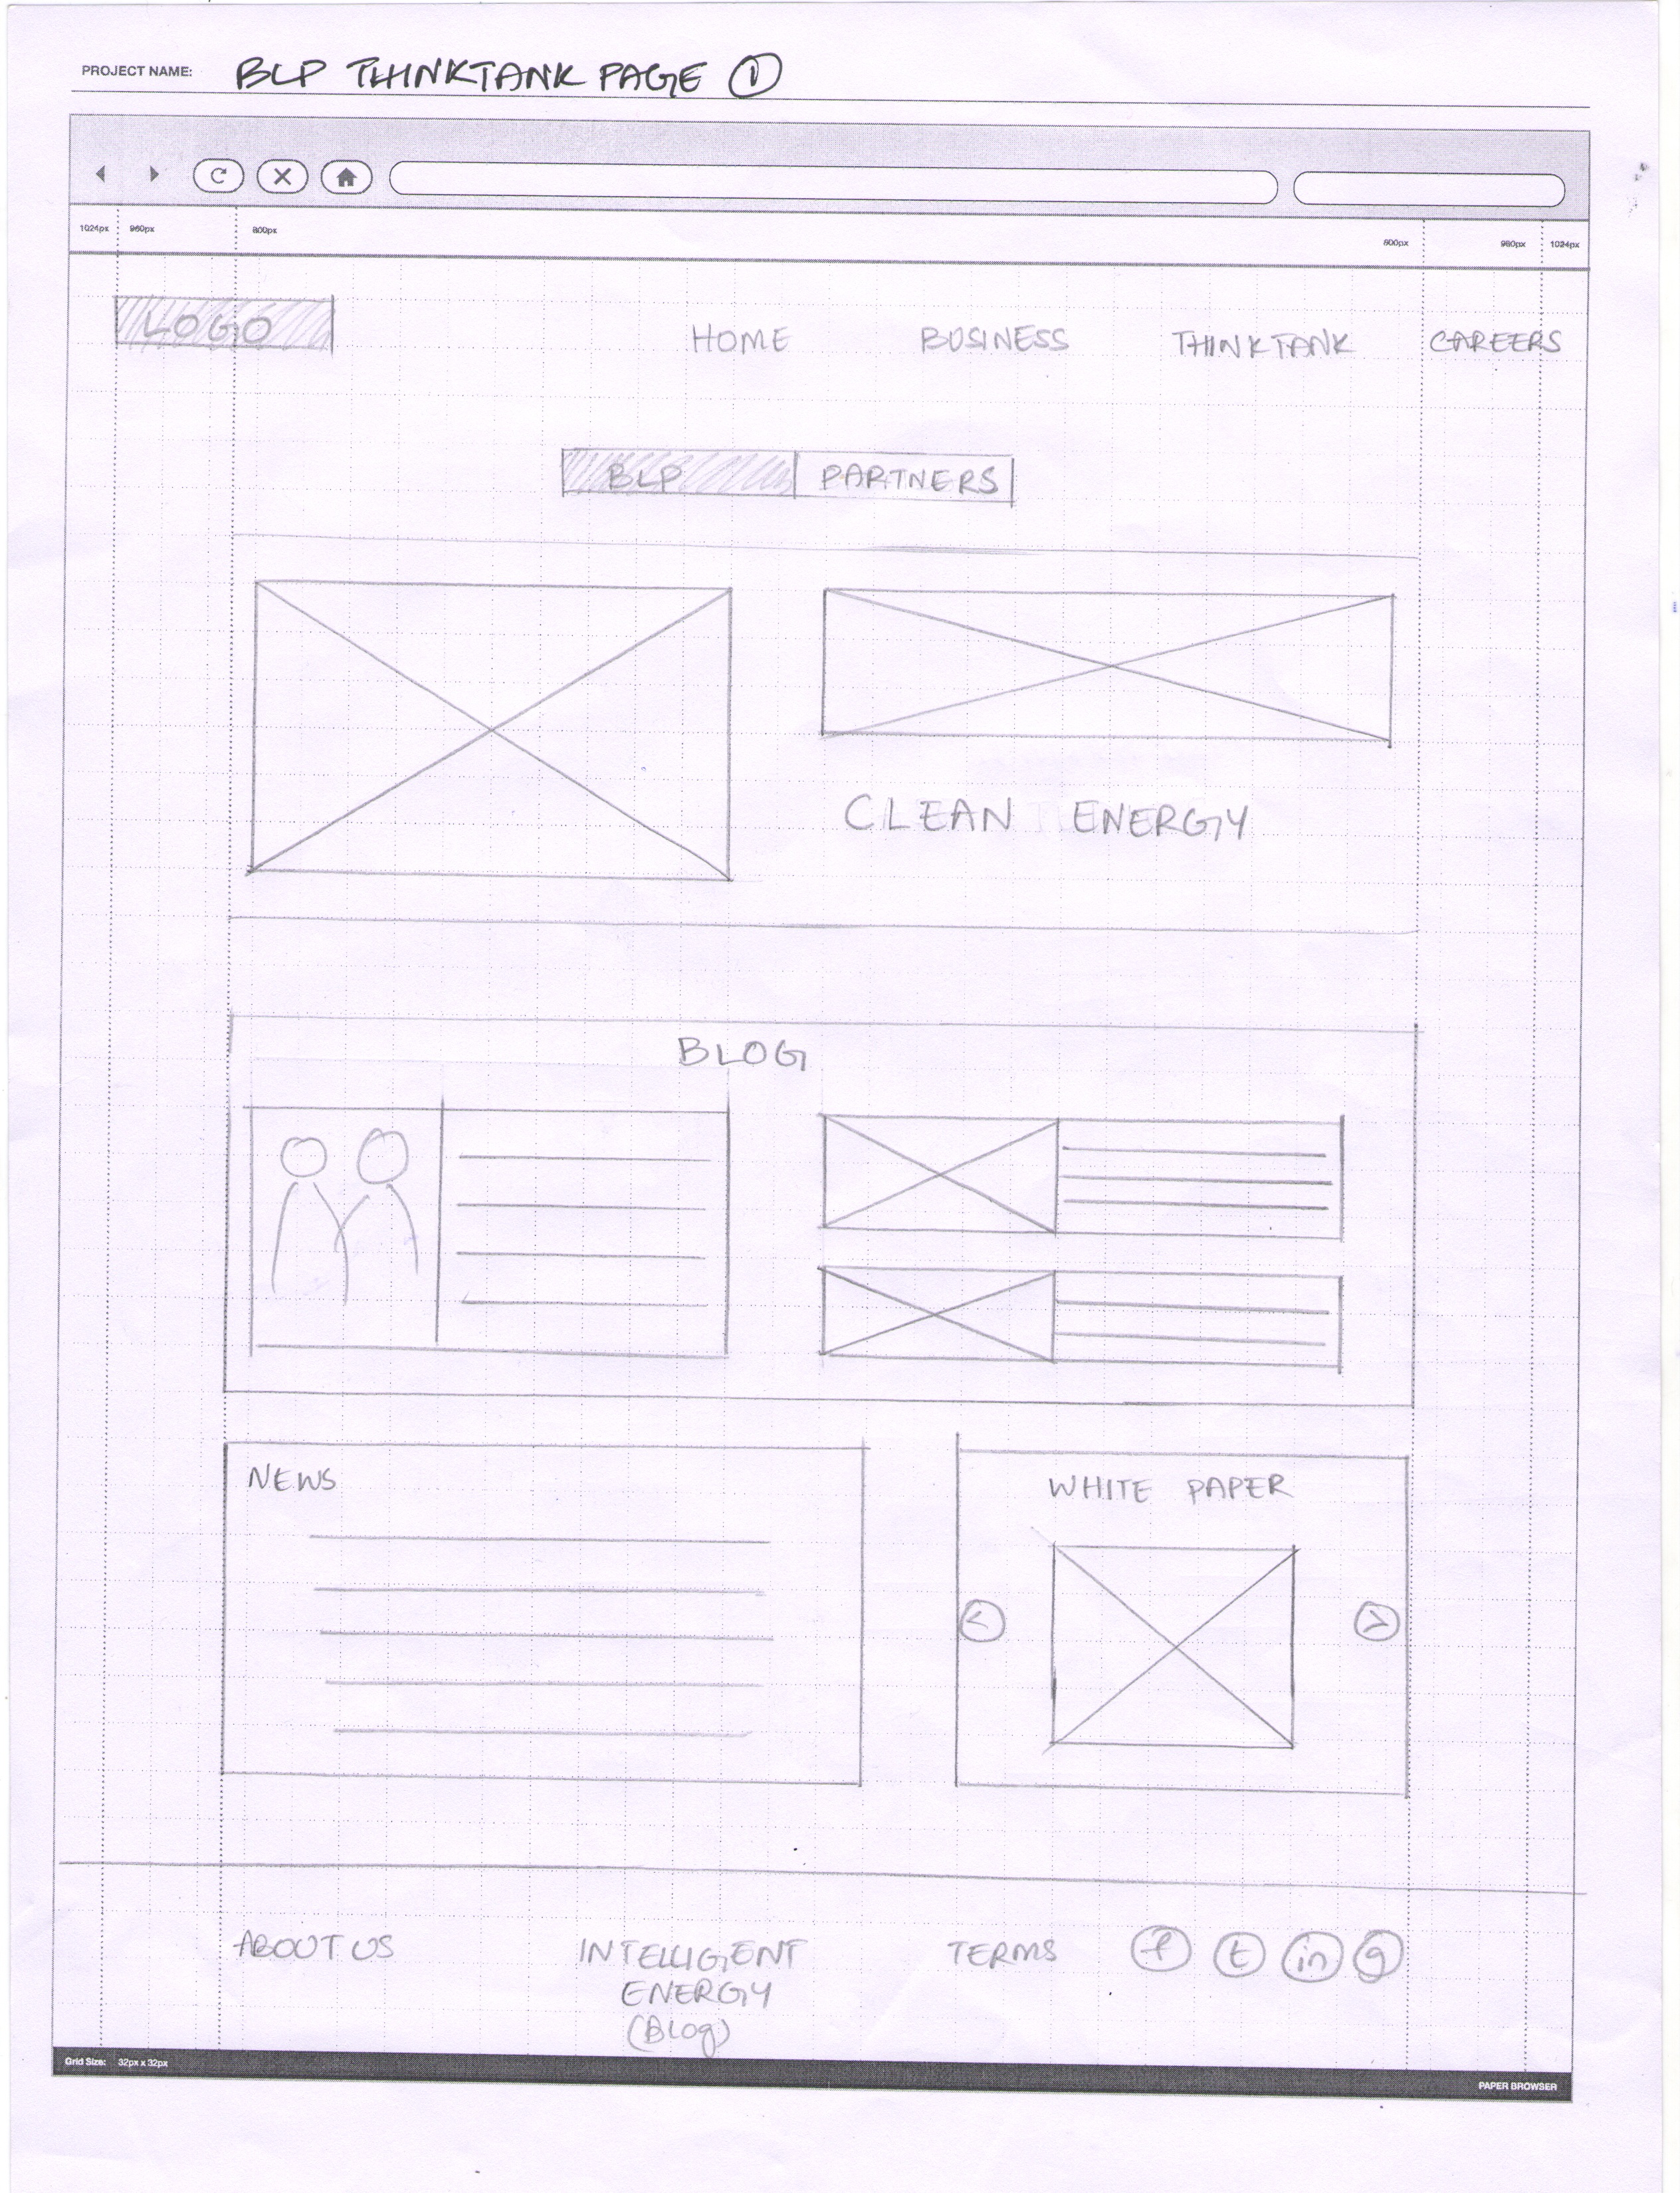 PROJECT NAME: BLP THINKTANK PAGE 1
1024px 960px 800px 800px 960px 1024px
LOGO HOME BUSINESS THINKTANK CAREERS
BLP PARTNERS
CLEAN ENERGY
BLOG
NEWS WHITE PAPER
ABOUT US INTELLIGENT TERMS f t in g
ENERGY
(Blog)
Grid Size: 32px x 32px PAPER BROWSER